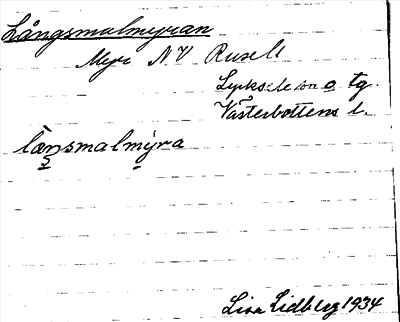 Långsmalmyran
Myr NV Rusele
Lycksele sn o. tg.
Västerbottens l.
lånsmalmýra
Lisa Lidberg 1934